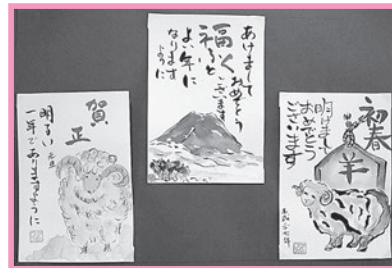 賀
正
元旦
明るい
一年でありますように
あけまして
おめでとう
ございます
福
よい年に
なります
ように
初春
羊
明けまして
おめでとう
ございます
平成二十七年